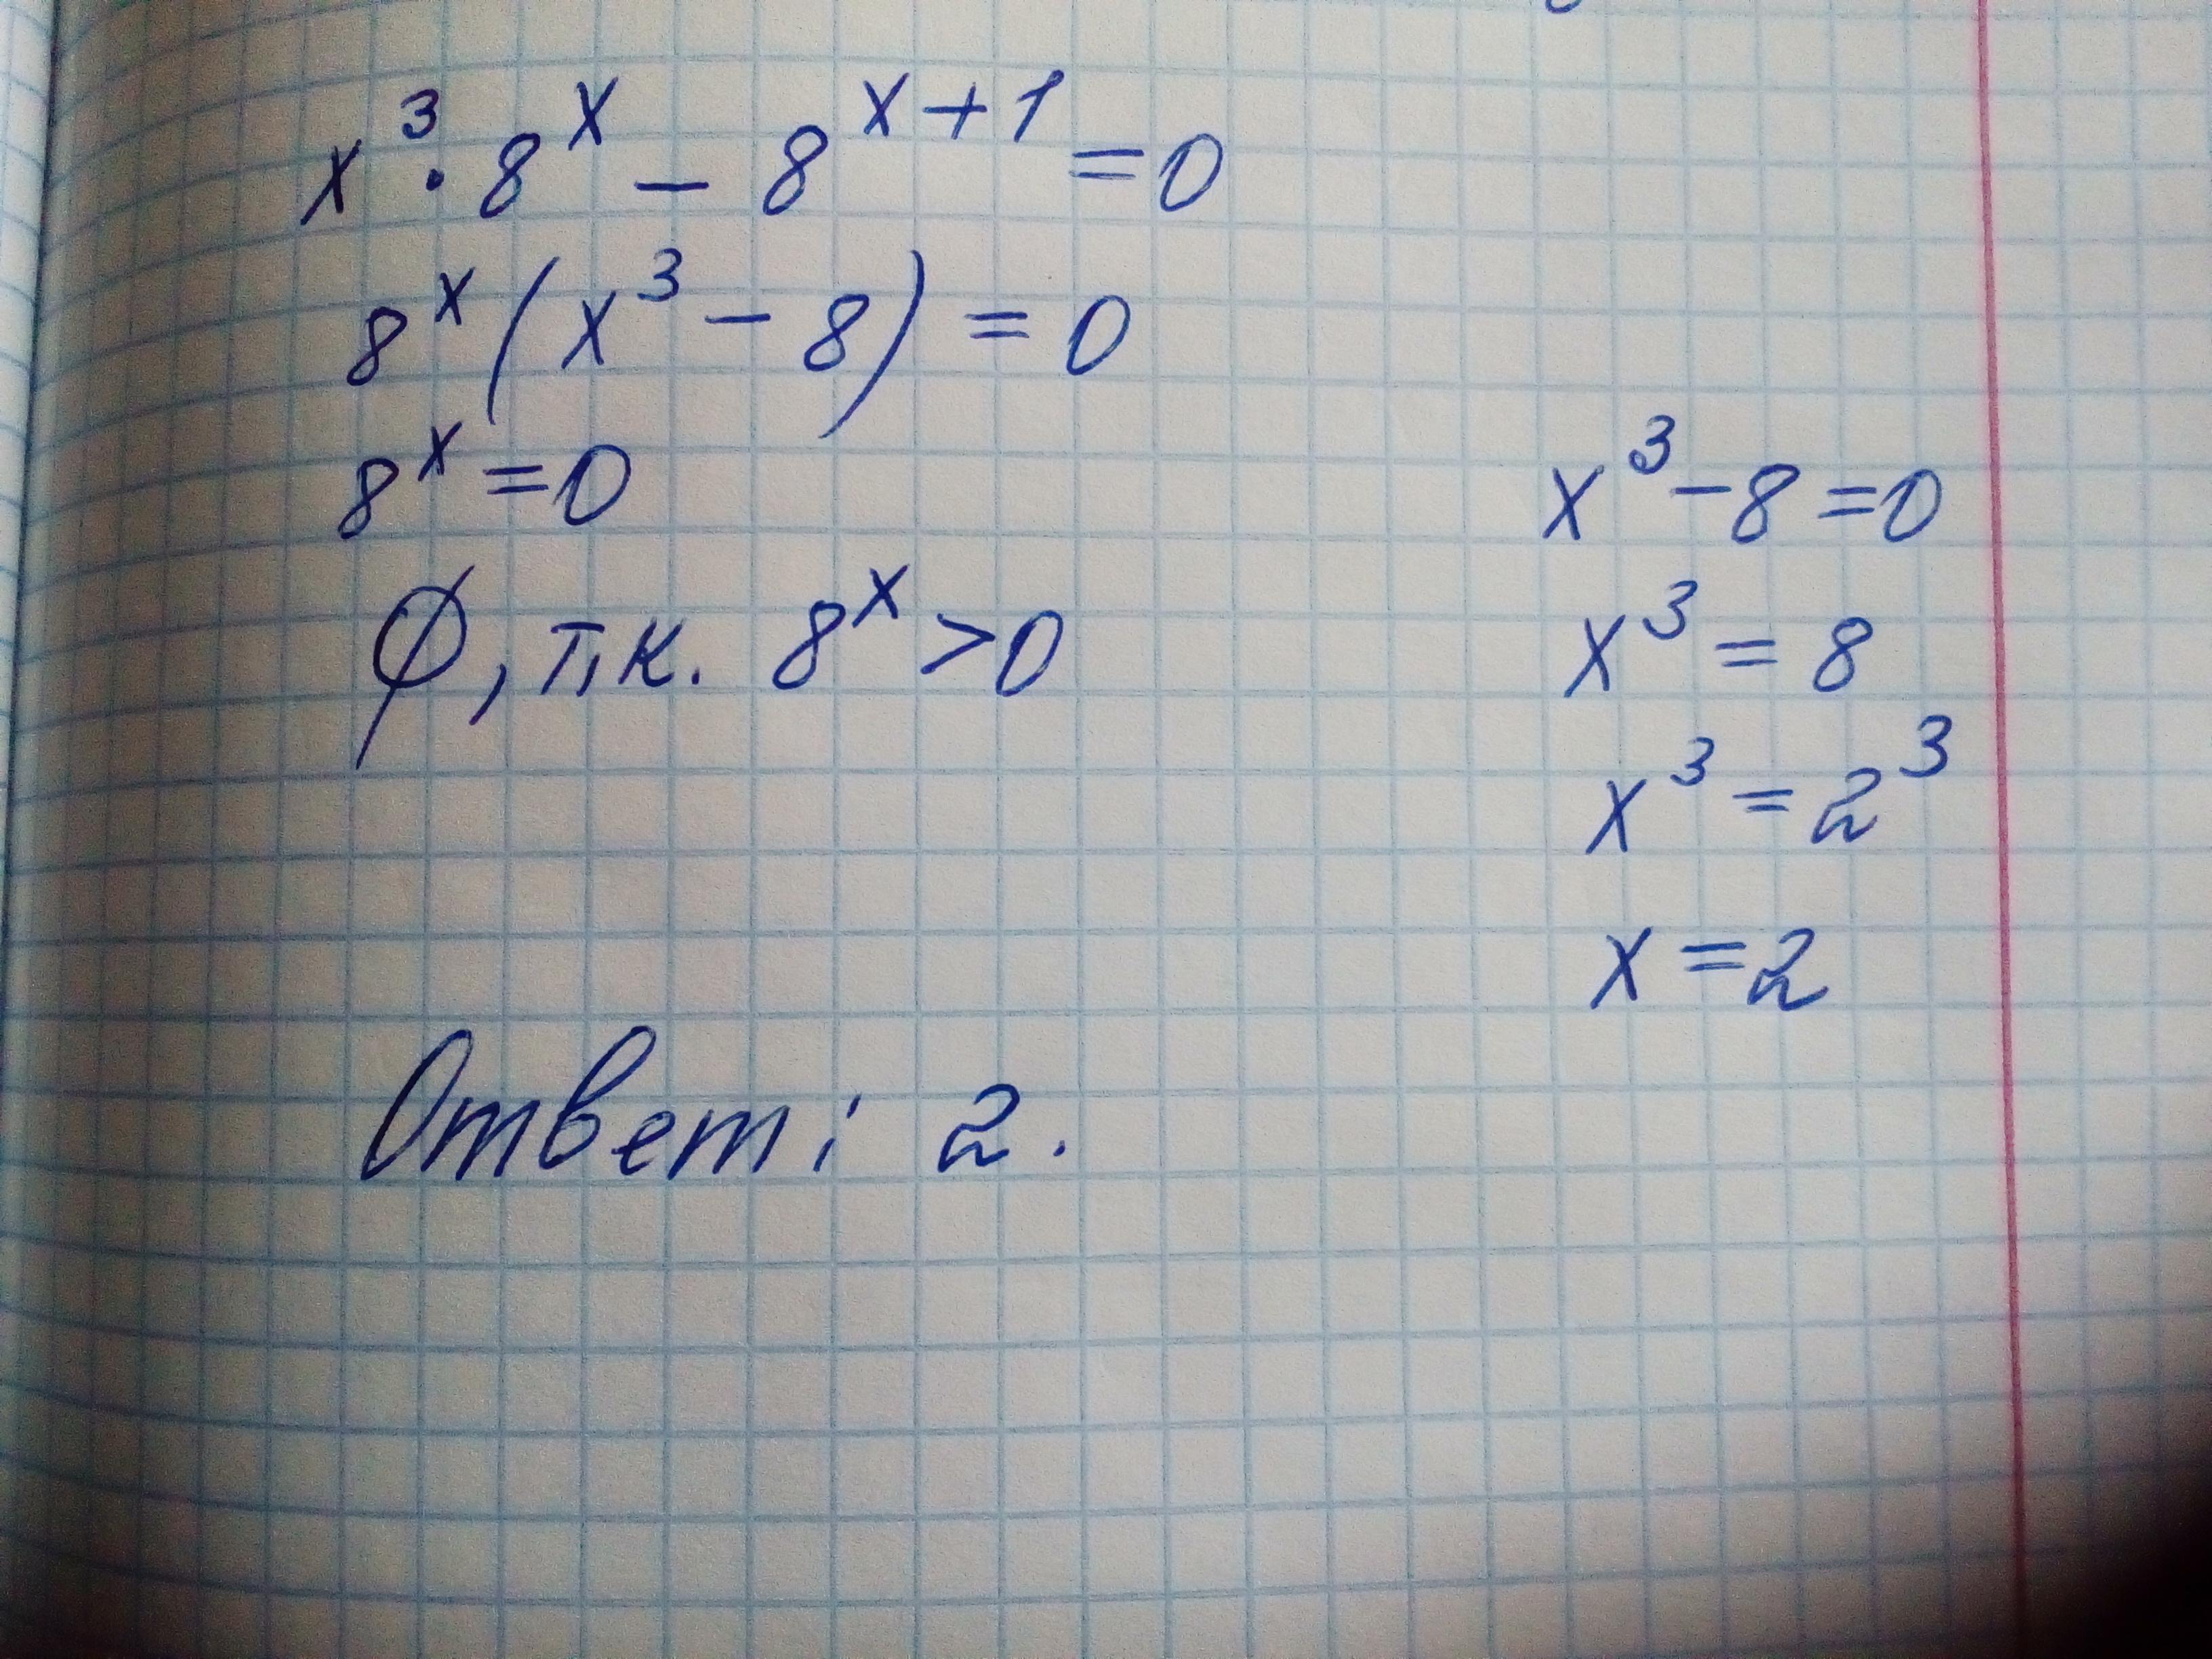 x³·8ˣ – 8ˣ⁺¹ = 0
8ˣ(x³ – 8) = 0
8ˣ = 0
Ø, т.к. 8ˣ > 0
x³ – 8 = 0
x³ = 8
x³ = 2³
x = 2
Ответ: 2.